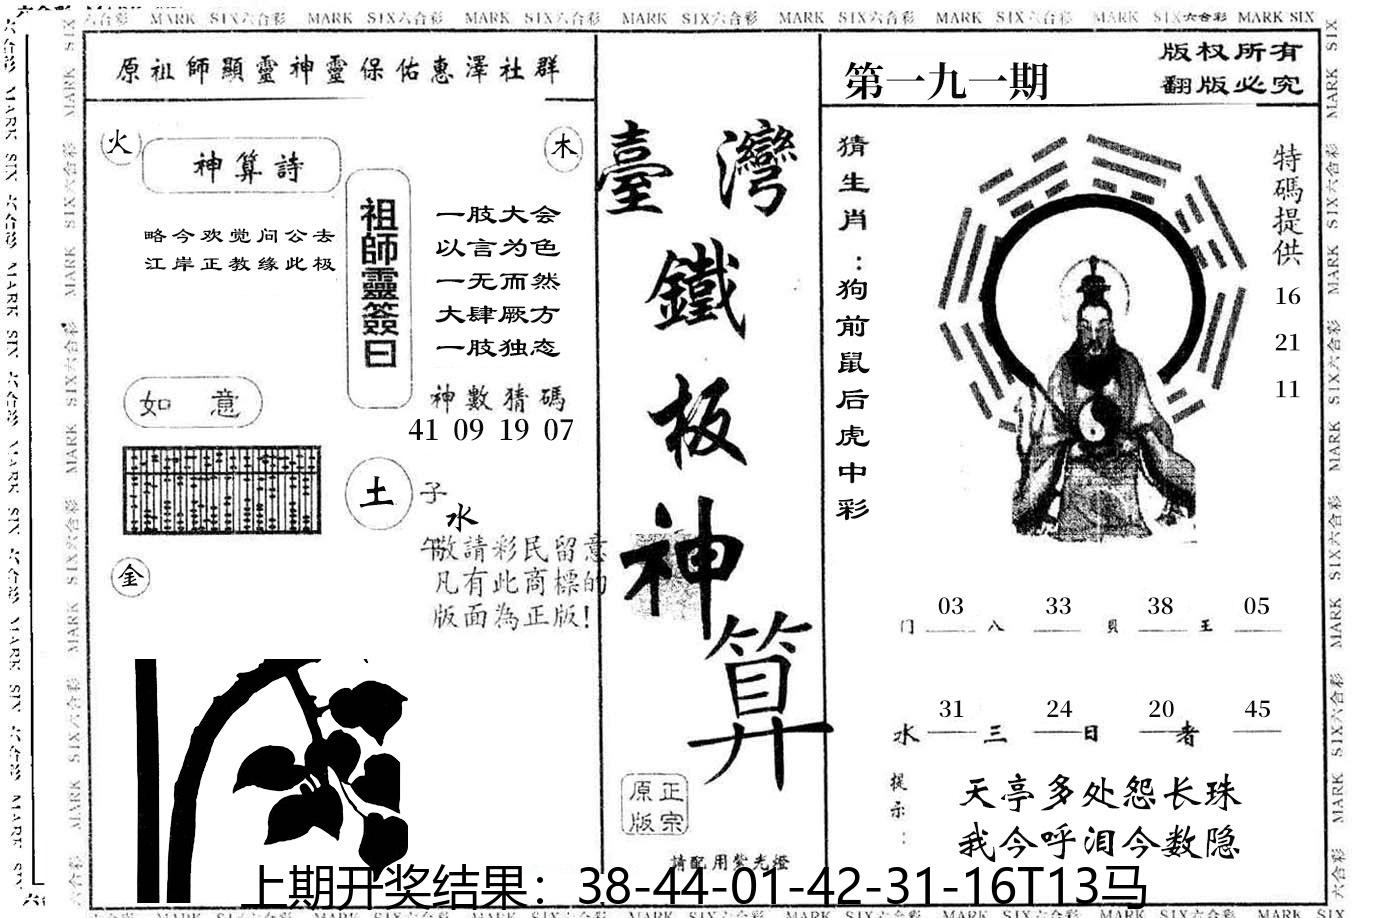 MARK SIX六合彩 MARK SIX六合彩 MARK SIX六合彩 MARK SIX六合彩 MARK SIX六合彩 MARK SIX六合彩 MARK SIX六合彩 MARK SIX
原祖師顯靈神靈保佑惠澤社群
火
神算詩
木
略今欢觉问公去
江岸正教缘此极
祖師靈簽曰
一肢大会
以言为色
一无而然
大肆厥方
一肢独态
神數猜碼
41 09 19 07
如意
土
子
水
午
金
敬請彩民留意
凡有此商標的
版面為正版!
臺灣
鐵
板
神
算
正宗
原版
請配用紫光燈
第一九一期
版权所有
翻版必究
猜生肖：狗前鼠后虎中彩
特碼提供
16
21
11
03 33 38 05
门 八 貝 王
31 24 20 45
水 三 日 者
提示：
天亭多处怨长珠
我今呼泪今数隐
上期开奖结果：38-44-01-42-31-16T13马